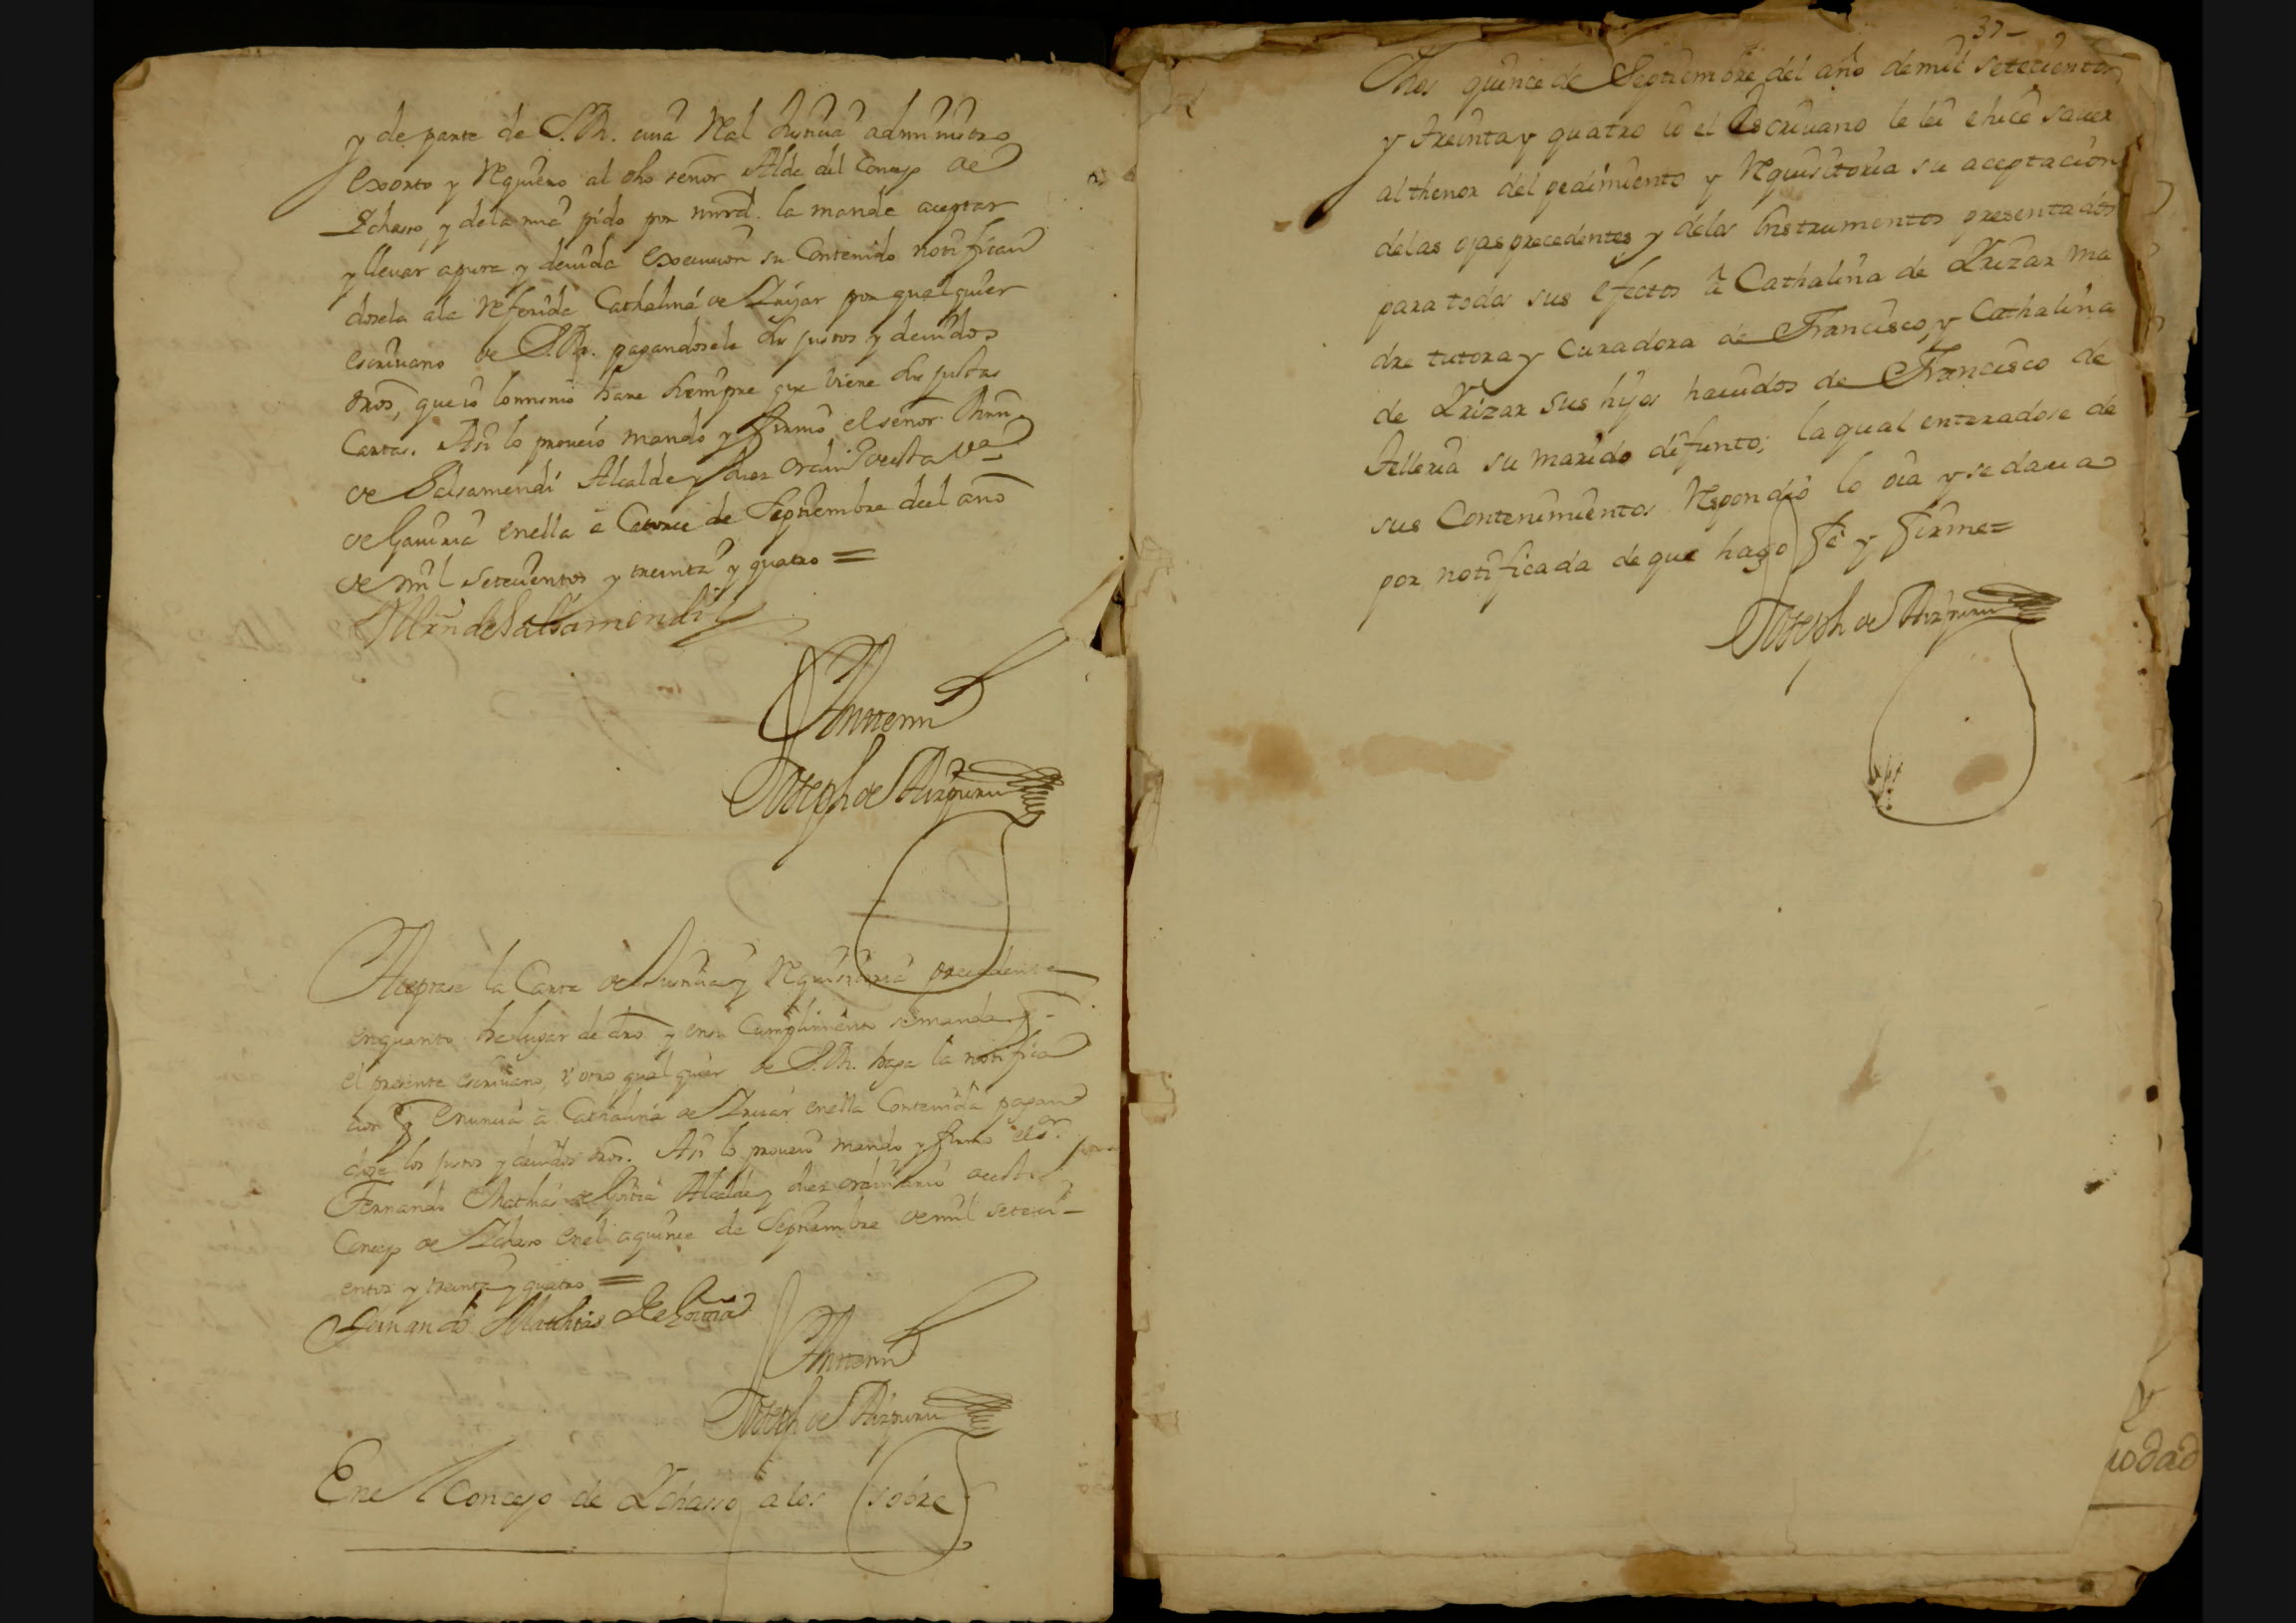 y de parte de S.M. cuia Real Justicia administro
exorto y Requiero al dho señor Alde del Concejo de
Ichasso, y dela mia pido por mrd. la mande aceptar
y llevar a pura y deuida execucion su Contenido notifican
dosela ala Referida Cathalina de Irizar por qualquier
escriuano de S.M. pagandosele sus justos y deuidos
dros, que io lo mismo hare siempre que viere sus justas
Cartas. Asi lo proueio mando y firmo el señor Mrn
de Salsamendi Alcalde y Juez ordin.º de esta Vª
de Gauiria en ella a Catorce de Septiembre del año
de mil setecientos y treinta y quatro =
Mrn de Salsamendi
Ante mi
Joseph de Aizpuru
Aceptase la Carta de Justicia y Requisitoria precedente
en quanto ha lugar de dro y en su Cumplimiento se manda q
el presente escriuano, u otro qualquier de S.M. haga la notifica
cion q enuncia a Cathalina de Irizar en ella Contenida pagan
dose los justos y deuidos dros. Asi lo proueio mando y firmo el sor
Fernando Mathias de Goitia Alcalde y Juez ordinario de este
Concejo de Ichaso en el a quince de Septiembre de mil seteci-
entos y treinta y quatro =
Fernando Mathias de Goitia
Ante mi
Joseph de Aizpuru
En el Concejo de Ychasso a los sobre
37-
dhos quince de Septiembre del año de mil setecientos
y treinta y quatro io el Escriuano le lei e hice sauer
al thenor del pedimiento y Requisitoria su aceptacion
delas ojas precedentes y delos Instrumentos presentados
para todos sus efectos a Cathalina de Yrizar ma
dre tutora y Curadora de Francisco, y Cathalina
de Yrizar sus hijos hauidos de Francisco de
Telleria su marido difunto; la qual enteradose de
sus Contenimientos Respondio lo oia y se daua
por notificada de que hago fe y firme=
Joseph de Aizpuru
iodad